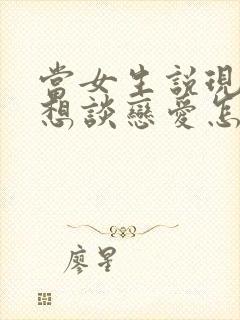 當女生説現
想談戀愛怎
廖星